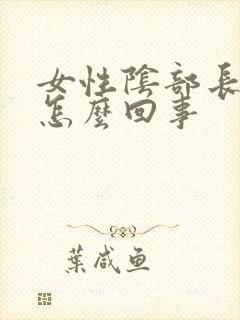 女性陰部長
怎麼回事
葉咸鱼